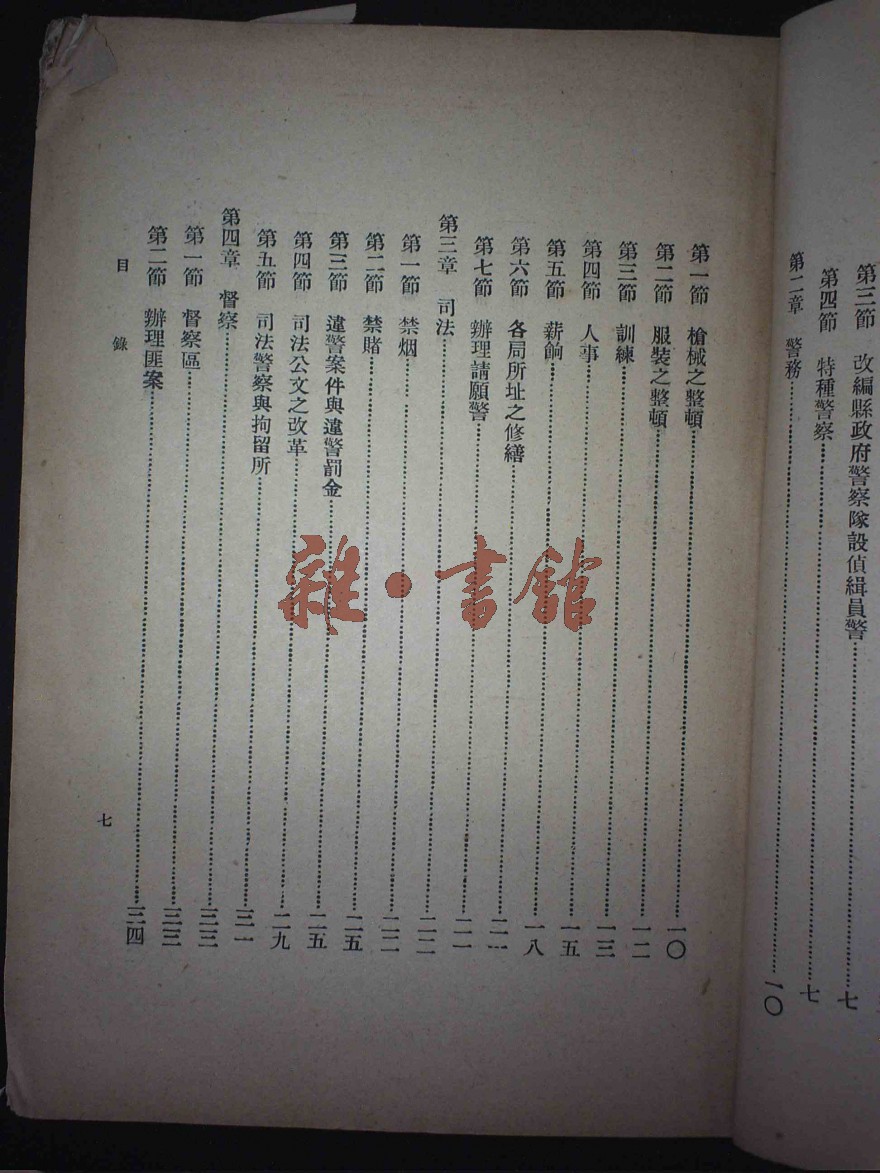 第三節 改編縣政府警察隊設偵緝員警……七
第四節 特種警察……七
第二章 警務……一〇
第一節 槍械之整頓……一〇
第二節 服裝之整頓……一二
第三節 訓練……一三
第四節 人事……一五
第五節 薪餉……一八
第六節 各局所址之修繕……二一
第七節 辦理請願警……二一
第三章 司法……二二
第一節 禁烟……二二
第二節 禁賭……二五
第三節 違警案件與違警罰金……二五
第四節 司法公文之改革……二九
第五節 司法警察與拘留所……三一
第四章 督察……三三
第一節 督察區……三三
第二節 辦理匪案……三四
目錄
七
雜·書館